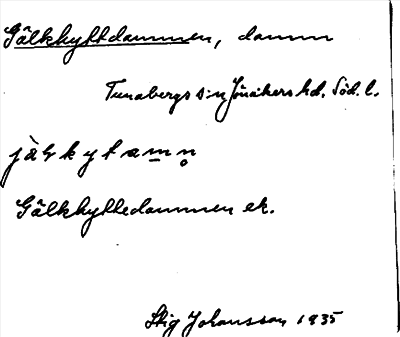 Gälkhyttdammen, damm
Tunabergs s:n Jönåkers hd. Söd. l.
Gälkhyttedammen ek.
Stig Johansson 1935